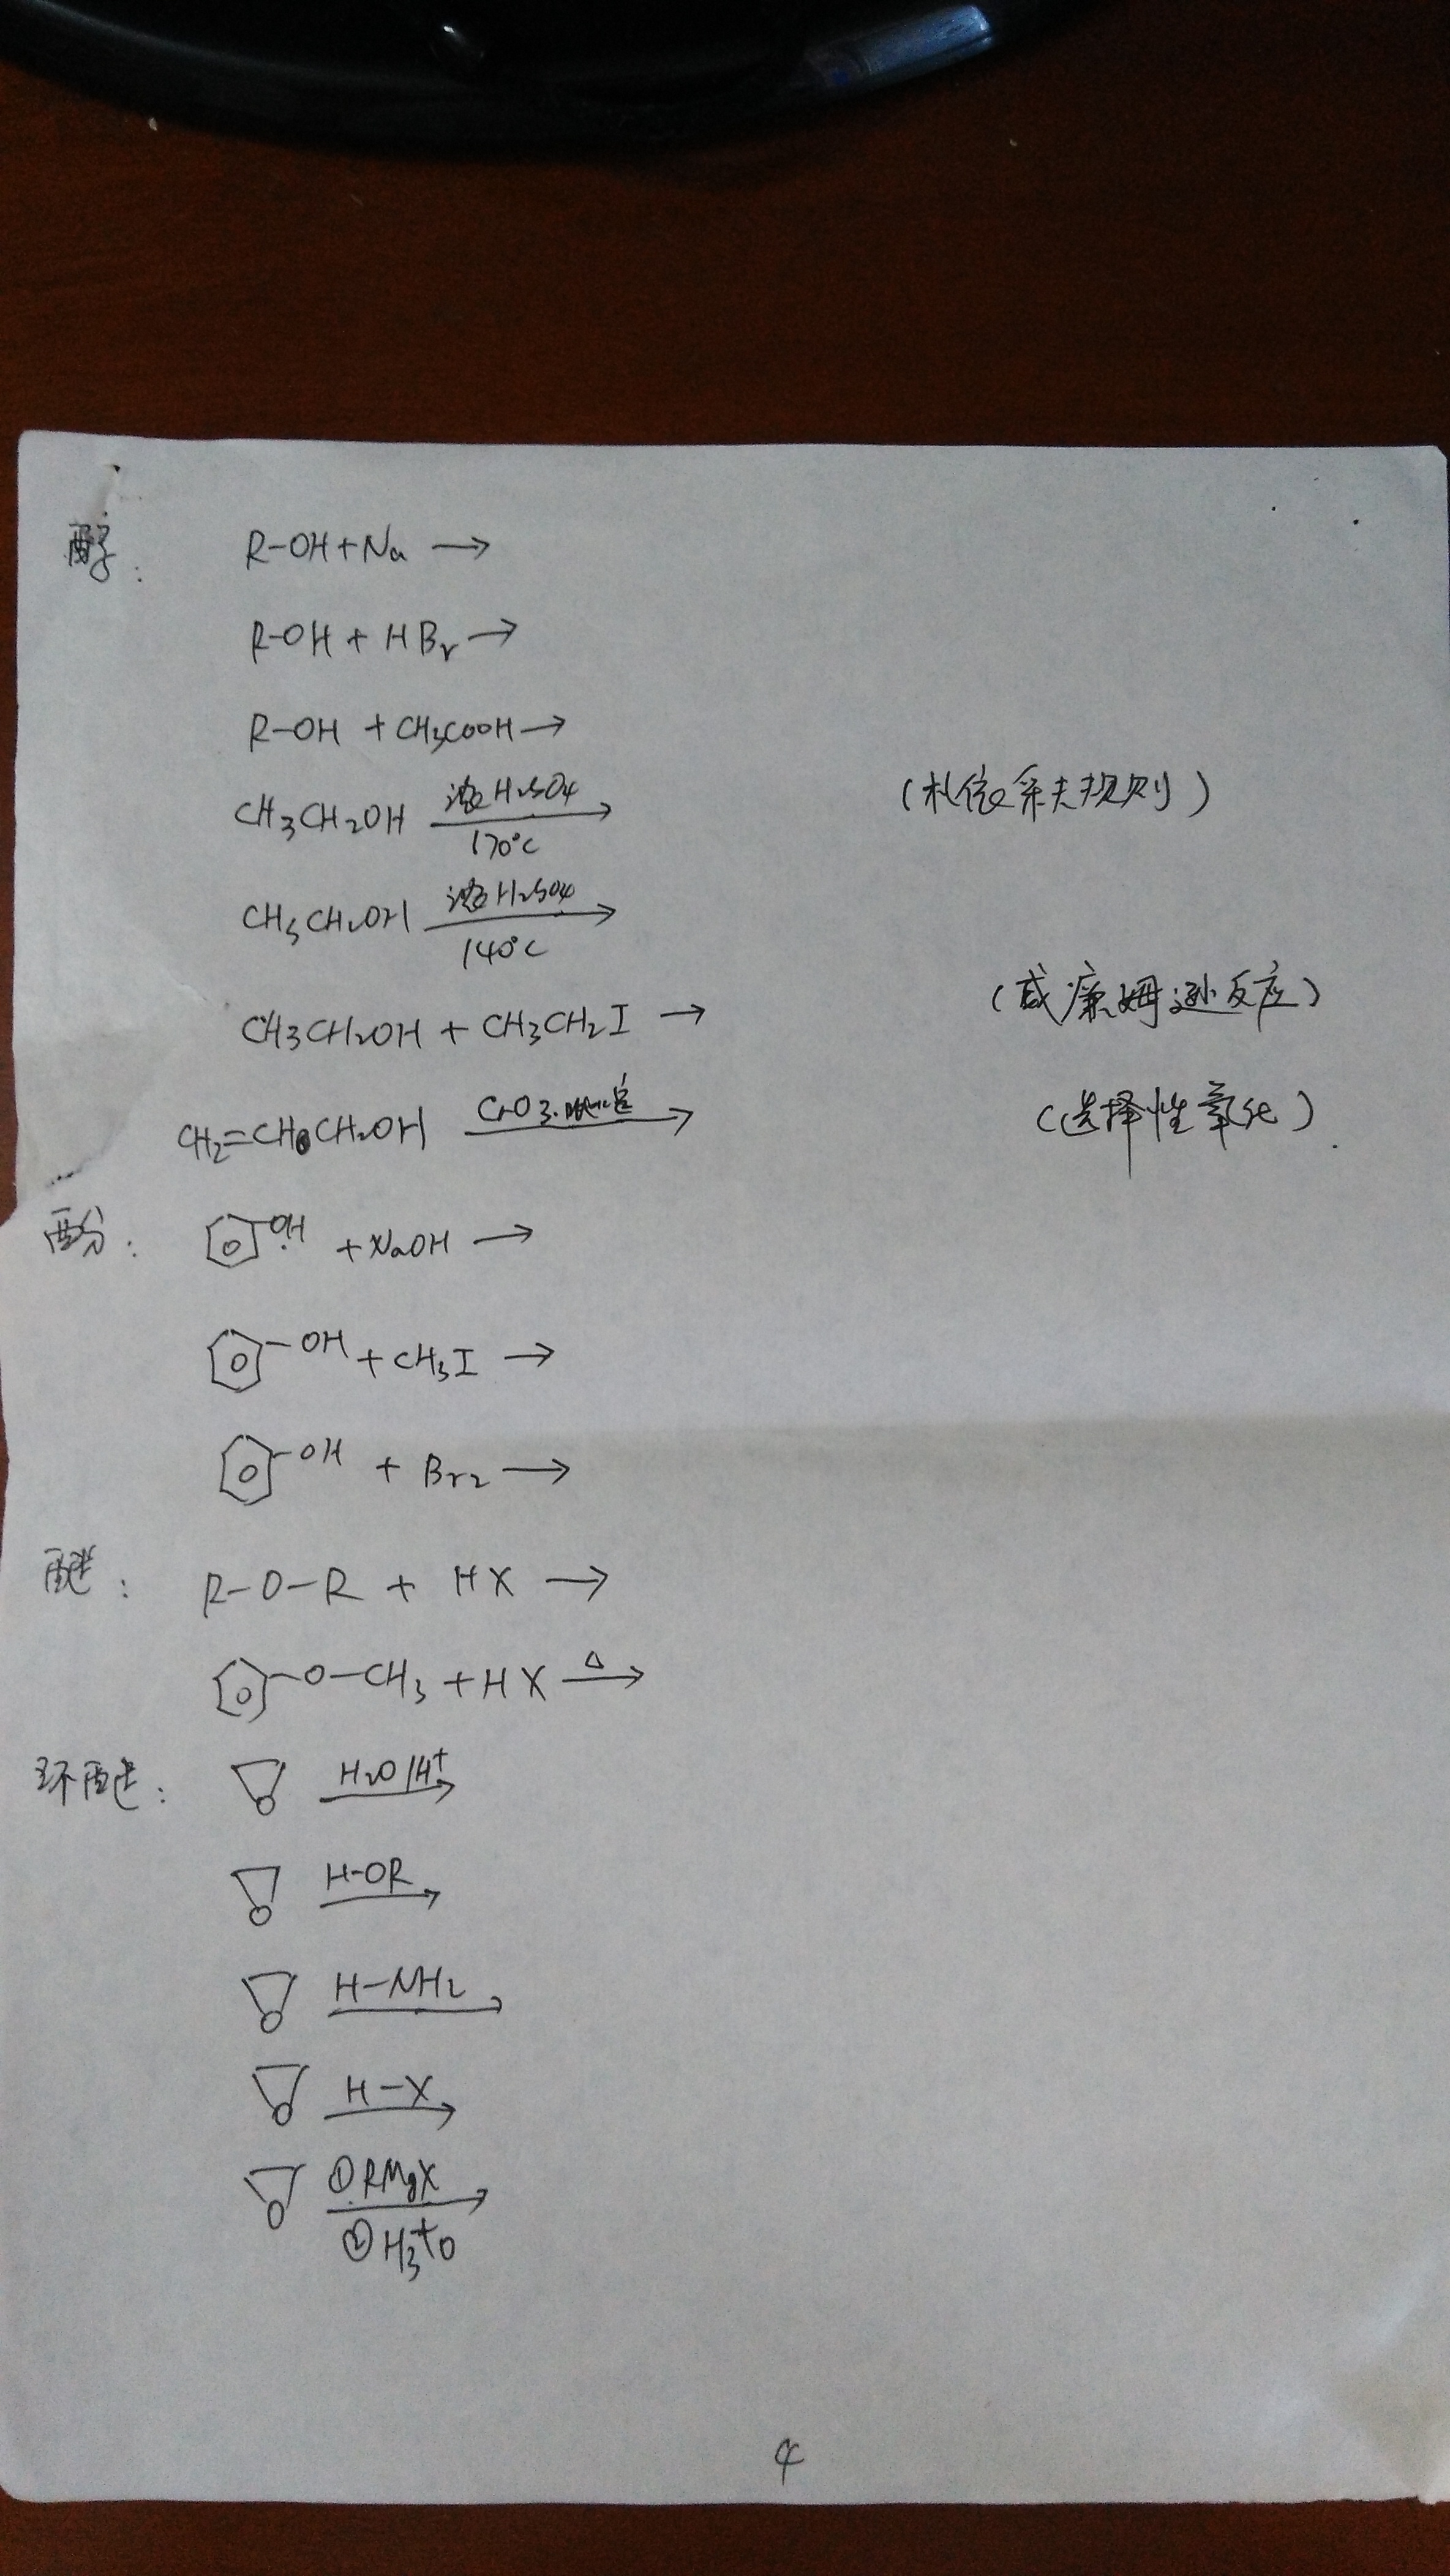 醇： R-OH+Na →
R-OH + HBr →
R-OH + CH3COOH →
CH3CH2OH 浓H2SO4 170°C → (札依采夫规则)
CH3CH2OH 浓H2SO4 140°C →
CH3CH2OH + CH3CH2I → (威廉姆逊反应)
CH2=CHCH2OH CrO3·吡啶 → (选择性氧化)
酚： OH +NaOH →
-OH + CH3I →
-OH + Br2 →
醚： R-O-R + HX →
-O-CH3 + HX △ →
环醚： O H2O/H+ →
O H-OR →
O H-NH2 →
O H-X →
O ①RMgX ②H3+O →
4